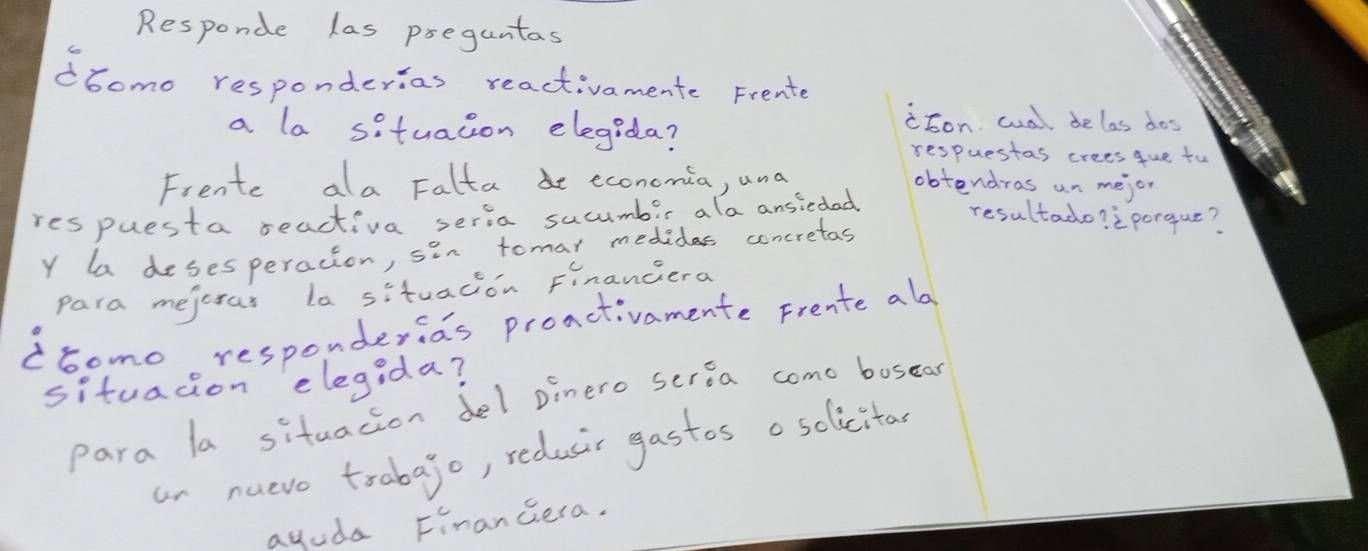 Responde las preguntas
¿Como responderías reactivamente Frente
a la situacion elegida?
Frente ala Falta de economía, una
respuesta reactiva seria sucumbir ala ansiedad
Y la desesperacion, sin tomar medidas concretas
para mejorar la situación Financiera
¿Como responderías proactivamente Frente ala
situacion elegida?
para la situacion del Dinero sería como buscar
un nuevo trabajo, reducir gastos o solicitar
ayuda Financiera.
¿Con cual de las dos
respuestas crees que tu
obtendras un mejor
resultado?¿porque?